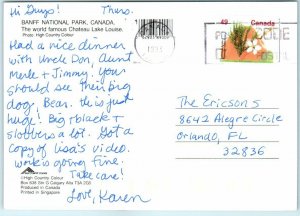 Hi Guys! Thurs.
BANFF NATIONAL PARK, CANADA.
The world famous Chateau Lake Louise.
Photo: High Country Colour
Had a nice dinner
with Uncle Don, Aunt
Merle + Jimmy. You
should see their big
dog, Bear. He is just
huge! Big + black +
slobbers a lot. Got a
copy of Lisa's video.
Work is going fine.
Take care!
Love, Karen
©High Country Colour
Box 638 Stn G Calgary Alta T3A 2G8
Produced in Canada
Printed in Singapore
49 Canada
CODE
POSTAL
The Ericson's
8642 Alegre Circle
Orlando, FL
32836